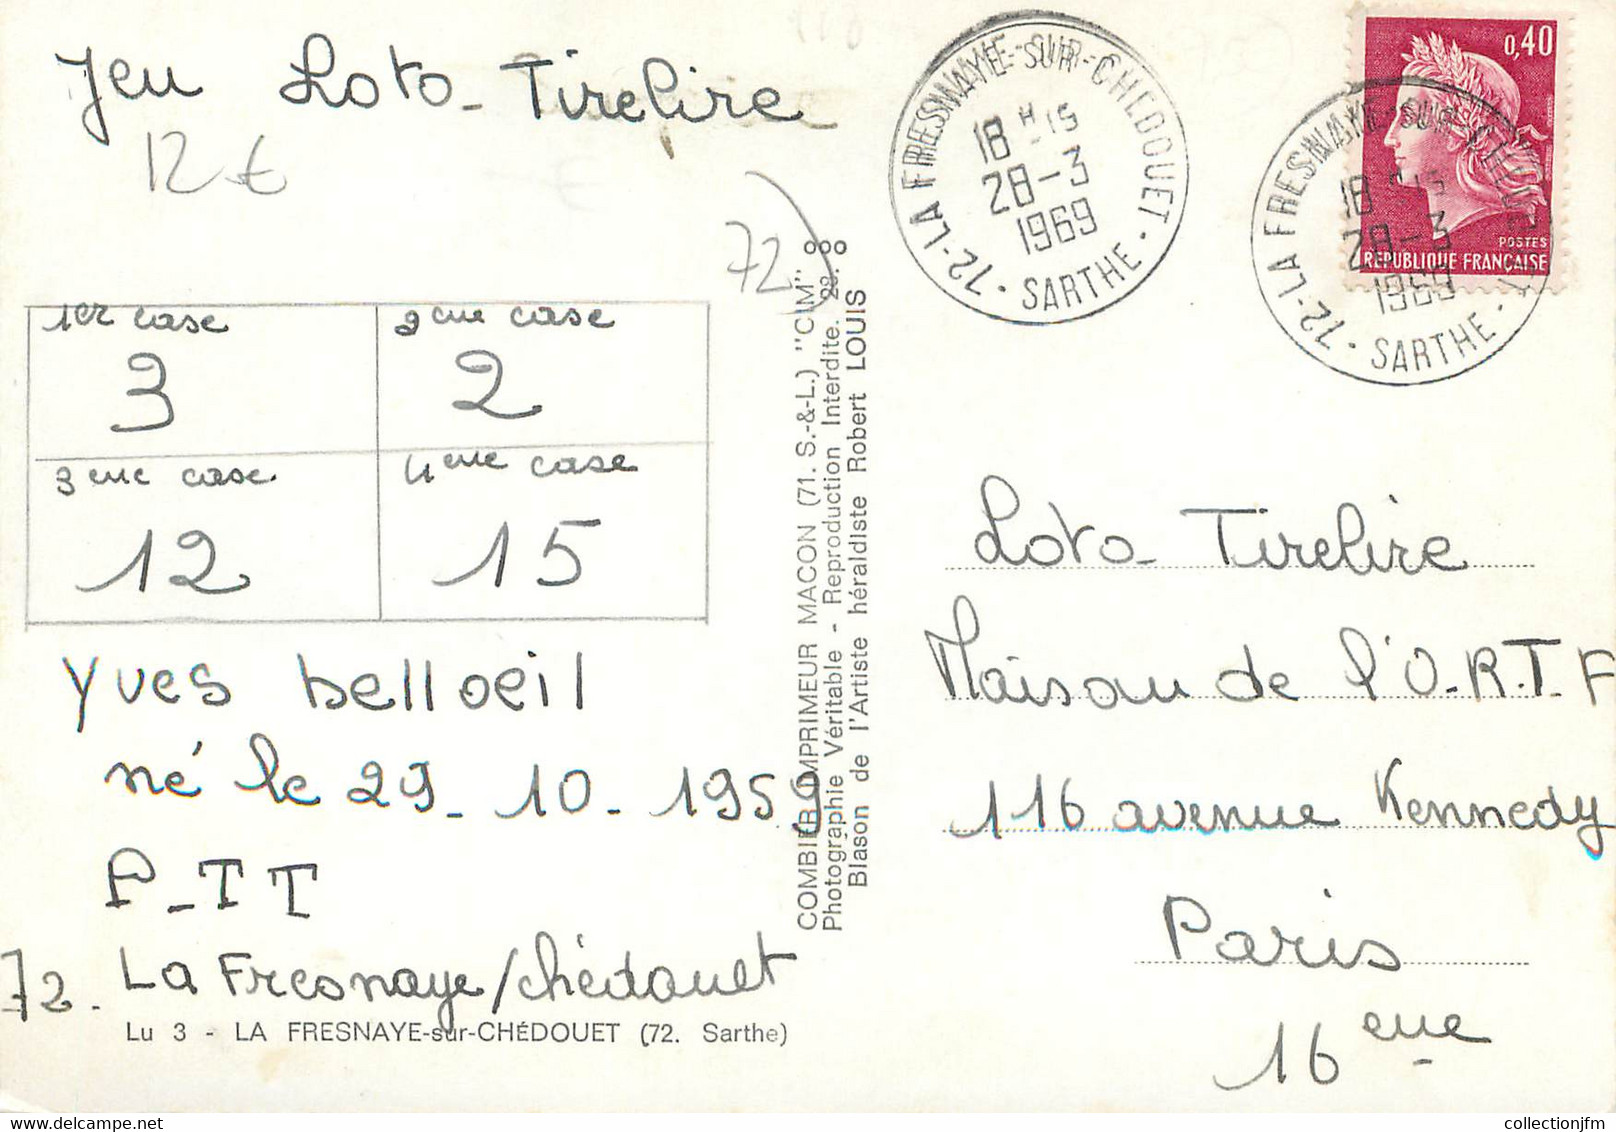 Jeu Loto-Tirelire
12 €
72)
1er case
2eme case
3
2
3eme case
4eme case
12
15
Yves belloeil
né le 29-10-1959
P-TT
72. La Fresnaye/chédouet
Lu 3 - LA FRESNAYE-sur-CHÉDOUET (72. Sarthe)
COMBIER IMPRIMEUR MACON (71. S.-&-L.) "CIM"
Photographie Véritable - Reproduction Interdite. 28.
Blason de l'Artiste héraldiste Robert LOUIS
72-LA FRESNAYE-SUR-CHEDOUET · SARTHE ·
18 H 15
28-3
1969
0,40
POSTES
RÉPUBLIQUE FRANÇAISE
72-LA FRESNAYE-SUR-CHEDOUET · SARTHE ·
18 H 15
28-3
1969
Loto-Tirelire
Maison de l'O.R.T.F
116 avenue Kennedy
Paris
16eme
collectionjfm